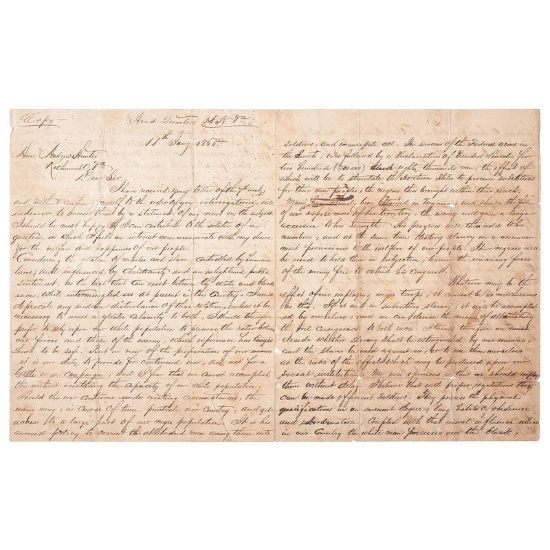 Copy
Head Quarters A N Va
11th Jany 1865
Hon Andrew Hunter
Richmond Va
Dear Sir
I have received your letter of the 7th
and without confining myself to the order of your interrogatories, will
endeavor to answer them by a statement of my views on the subject.
I should be most happy if I can contribute to the solution of a
question in which I feel an interest commensurate with my desire
for the welfare and happiness of our people.
Considering the relation of master and slave, controlled by humane
laws, and influenced by christianity and an enlightened public
sentiment, as the best that can exist between the white and black
races while intermingled as at present in this Country, I would
deprecate any sudden disturbance of that relation, unless it be
necessary to avert a greater calamity to both. I should therefore
prefer to rely upon our white population to preserve the
our forces and those of the enemy, which experience has taught
to be safe. But in view of the preparations of our enemies
it is our duty to provide for continued war, and not for a
battle or a Campaign, and I fear that we cannot accomplish
this without overtaxing the capacity of our white population.
Should the war continue under existing circumstances, the
enemy may in course of time penetrate our Country, and get
access to a large part of our negro population. It is his
avowed policy to convert the ablebodied men among them into
soldiers, and emancipate all. The success of the Federal arms in
the South, was followed by a Proclamation of President Lincoln for
thousand men, the effect of
which will be to stimulate the to procure substitutes
for their own people, the negroes thus brought within their reach.
Many have been in Virginia, and should the fate
of war expose more of her territory, the enemy will gain a large
accession to his strength. His progress will thus add to his
numbers, and at the same time destroy slavery in a manner
most pernicious to the welfare of our people. The negroes will
be used to hold them in subjection, leaving the remaining force
of the enemy free to extend his conquest.
Whatever may be the
effect of our employing negro troops, it cannot be as mischievous
as this. If it end in subverting slavery, it will be accomplished
by ourselves, and we can devise the means of alleviating
the evil consequences to both races. I think therefore we must
decide whether slavery shall be extinguished by our enemies,
and the slaves be used against us, or to use them ourselves
at the risk of the effects which may be produced upon our
social institutions. My own opinion is that we should employ
them without delay. I believe that with proper regulations they
can be made efficient soldiers. They possess the physical
qualifications in an eminent degree; long habits of obedience
and subordination, coupled with that moral influence which
in our Country the white man possesses over the black,